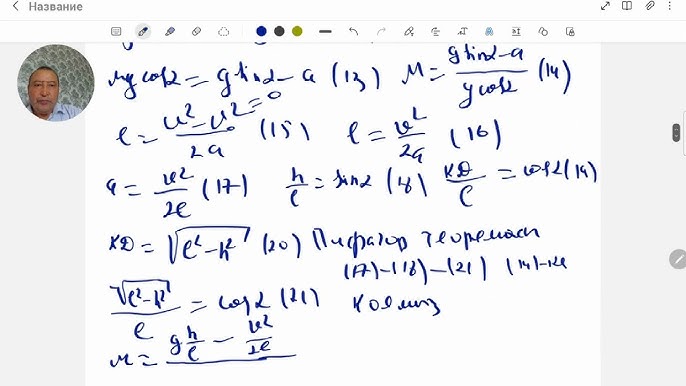 Название
μg cosα = g sinα - a (13) μ = (g sinα - a)/(g cosα) (14)
ℓ = (υ² - υ₀²)/2a (15) = 0 ℓ = υ²/2a (16)
a = υ²/2ℓ (17) h/ℓ = sinα (18) KD/ℓ = cosα (19)
KD = √(ℓ² - h²) (20) Пифагор теоремаси
(17)-(18)-(21) (14)-
√(ℓ² - h²)/ℓ = cosα (21)
μ = (g h/ℓ - υ²/2ℓ)/